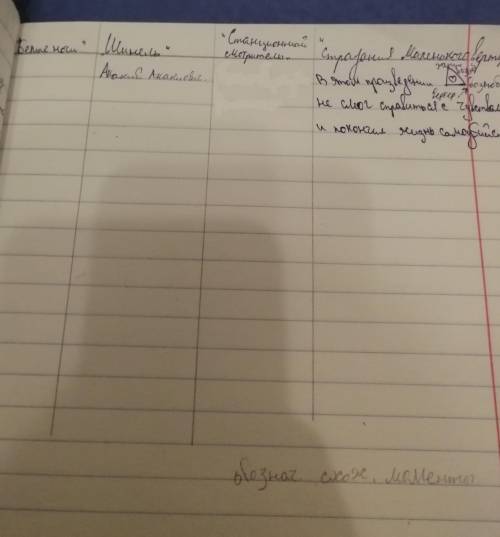 Белые ночи"
"Шинель"
"Станционной
смотритель.
"Страдания Маленького
Акакий Акакиевич
В этом произведении
не смог справиться с чувствами
и покончил жизнь
обознач схож. моменты